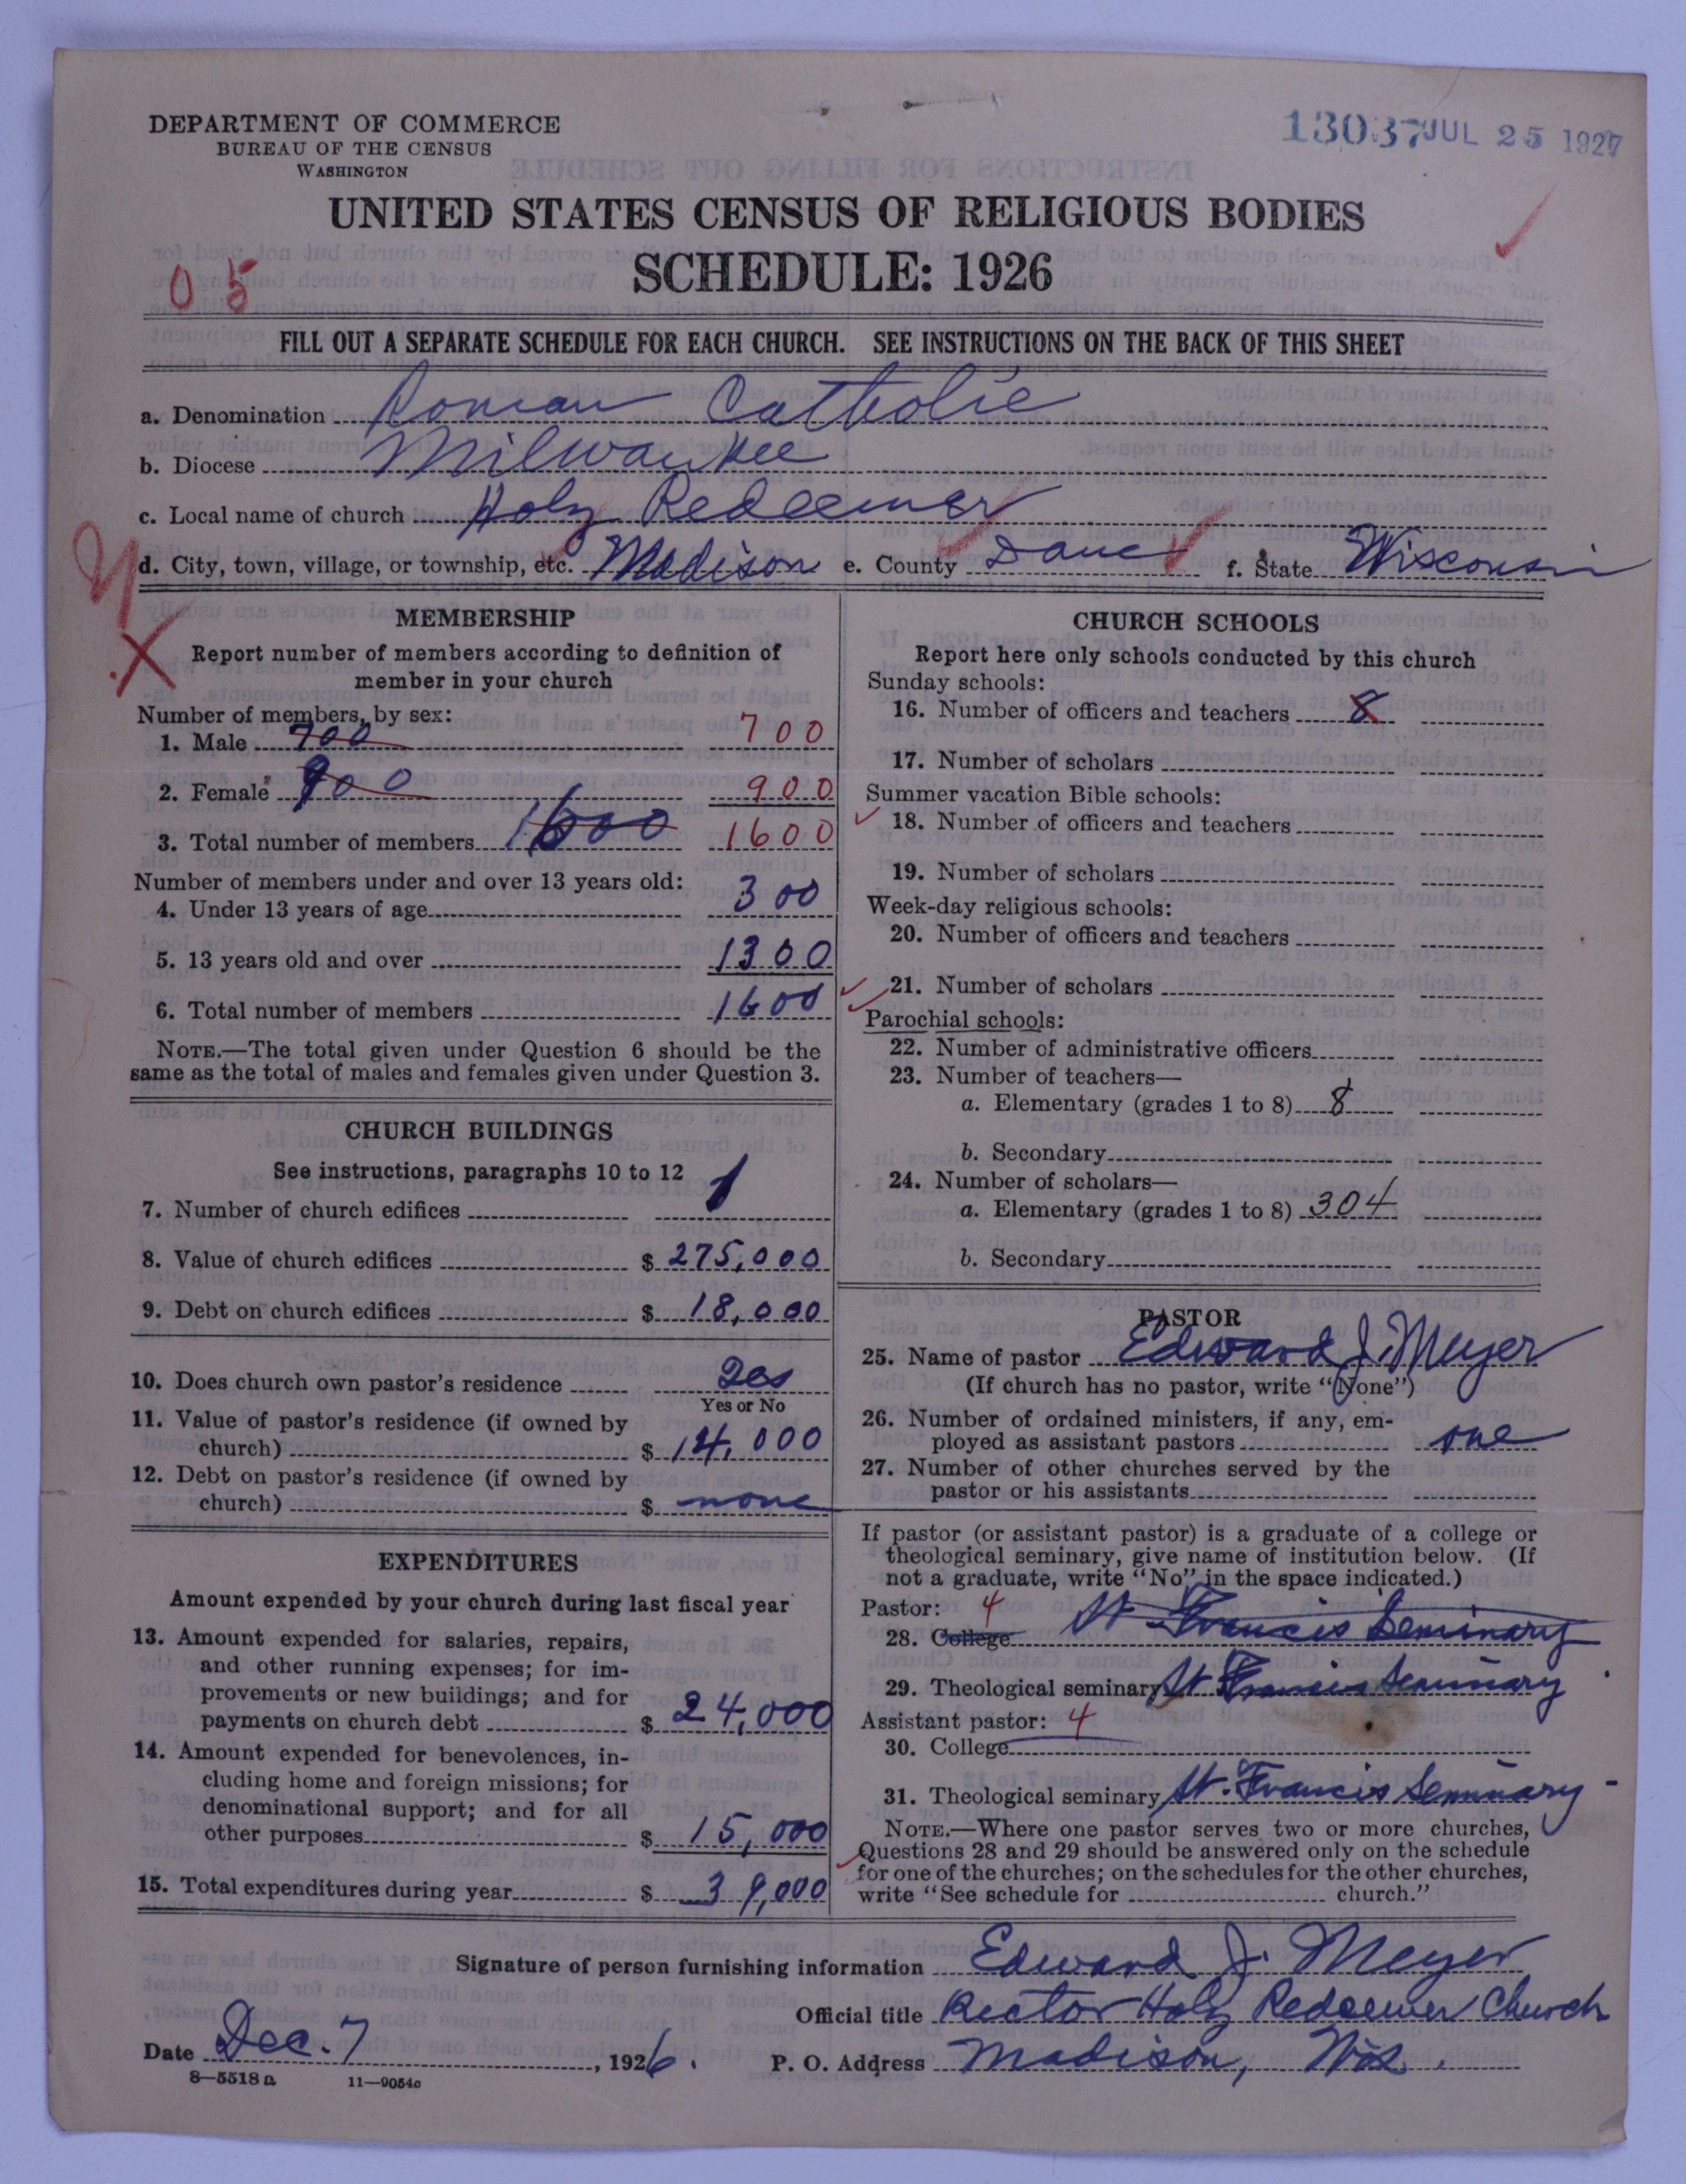 DEPARTMENT OF COMMERCE
BUREAU OF THE CENSUS
WASHINGTON
13037 JUL 25 1927
UNITED STATES CENSUS OF RELIGIOUS BODIES
SCHEDULE: 1926
0 5
FILL OUT A SEPARATE SCHEDULE FOR EACH CHURCH. SEE INSTRUCTIONS ON THE BACK OF THIS SHEET
a. Denomination Roman Catholic
b. Diocese Milwaukee
c. Local name of church Holy Redeemer
d. City, town, village, or township, etc. Madison e. County Dane f. State Wisconsin
MEMBERSHIP
Report number of members according to definition of
member in your church
Number of members, by sex:
1. Male 700 700
2. Female 900 900
3. Total number of members 1600 1600
Number of members under and over 13 years old:
4. Under 13 years of age 300
5. 13 years old and over 1300
6. Total number of members 1600
NOTE.—The total given under Question 6 should be the
same as the total of males and females given under Question 3.
CHURCH BUILDINGS
See instructions, paragraphs 10 to 12
7. Number of church edifices 1
8. Value of church edifices $ 275,000
9. Debt on church edifices $ 18,000
10. Does church own pastor's residence Yes
Yes or No
11. Value of pastor's residence (if owned by
church) $ 14,000
12. Debt on pastor's residence (if owned by
church) $ none
EXPENDITURES
Amount expended by your church during last fiscal year
13. Amount expended for salaries, repairs,
and other running expenses; for im-
provements or new buildings; and for
payments on church debt $ 24,000
14. Amount expended for benevolences, in-
cluding home and foreign missions; for
denominational support; and for all
other purposes $ 15,000
15. Total expenditures during year $ 39,000
CHURCH SCHOOLS
Report here only schools conducted by this church
Sunday schools:
16. Number of officers and teachers 8
17. Number of scholars
Summer vacation Bible schools:
18. Number of officers and teachers
19. Number of scholars
Week-day religious schools:
20. Number of officers and teachers
21. Number of scholars
Parochial schools:
22. Number of administrative officers
23. Number of teachers—
a. Elementary (grades 1 to 8) 8
b. Secondary
24. Number of scholars—
a. Elementary (grades 1 to 8) 304
b. Secondary
PASTOR
25. Name of pastor Edward J. Meyer
(If church has no pastor, write "None")
26. Number of ordained ministers, if any, em-
ployed as assistant pastors one
27. Number of other churches served by the
pastor or his assistants
If pastor (or assistant pastor) is a graduate of a college or
theological seminary, give name of institution below. (If
not a graduate, write "No" in the space indicated.)
Pastor: 4
28. College St. Francis Seminary
29. Theological seminary St. Francis Seminary
Assistant pastor: 4
30. College
31. Theological seminary St. Francis Seminary
NOTE.—Where one pastor serves two or more churches,
Questions 28 and 29 should be answered only on the schedule
for one of the churches; on the schedules for the other churches,
write "See schedule for church."
Signature of person furnishing information Edward J. Meyer
Official title Rector Holy Redeemer Church
Date Dec. 7, 1926. P. O. Address Madison, Wis.
8—5518a 11—9054c